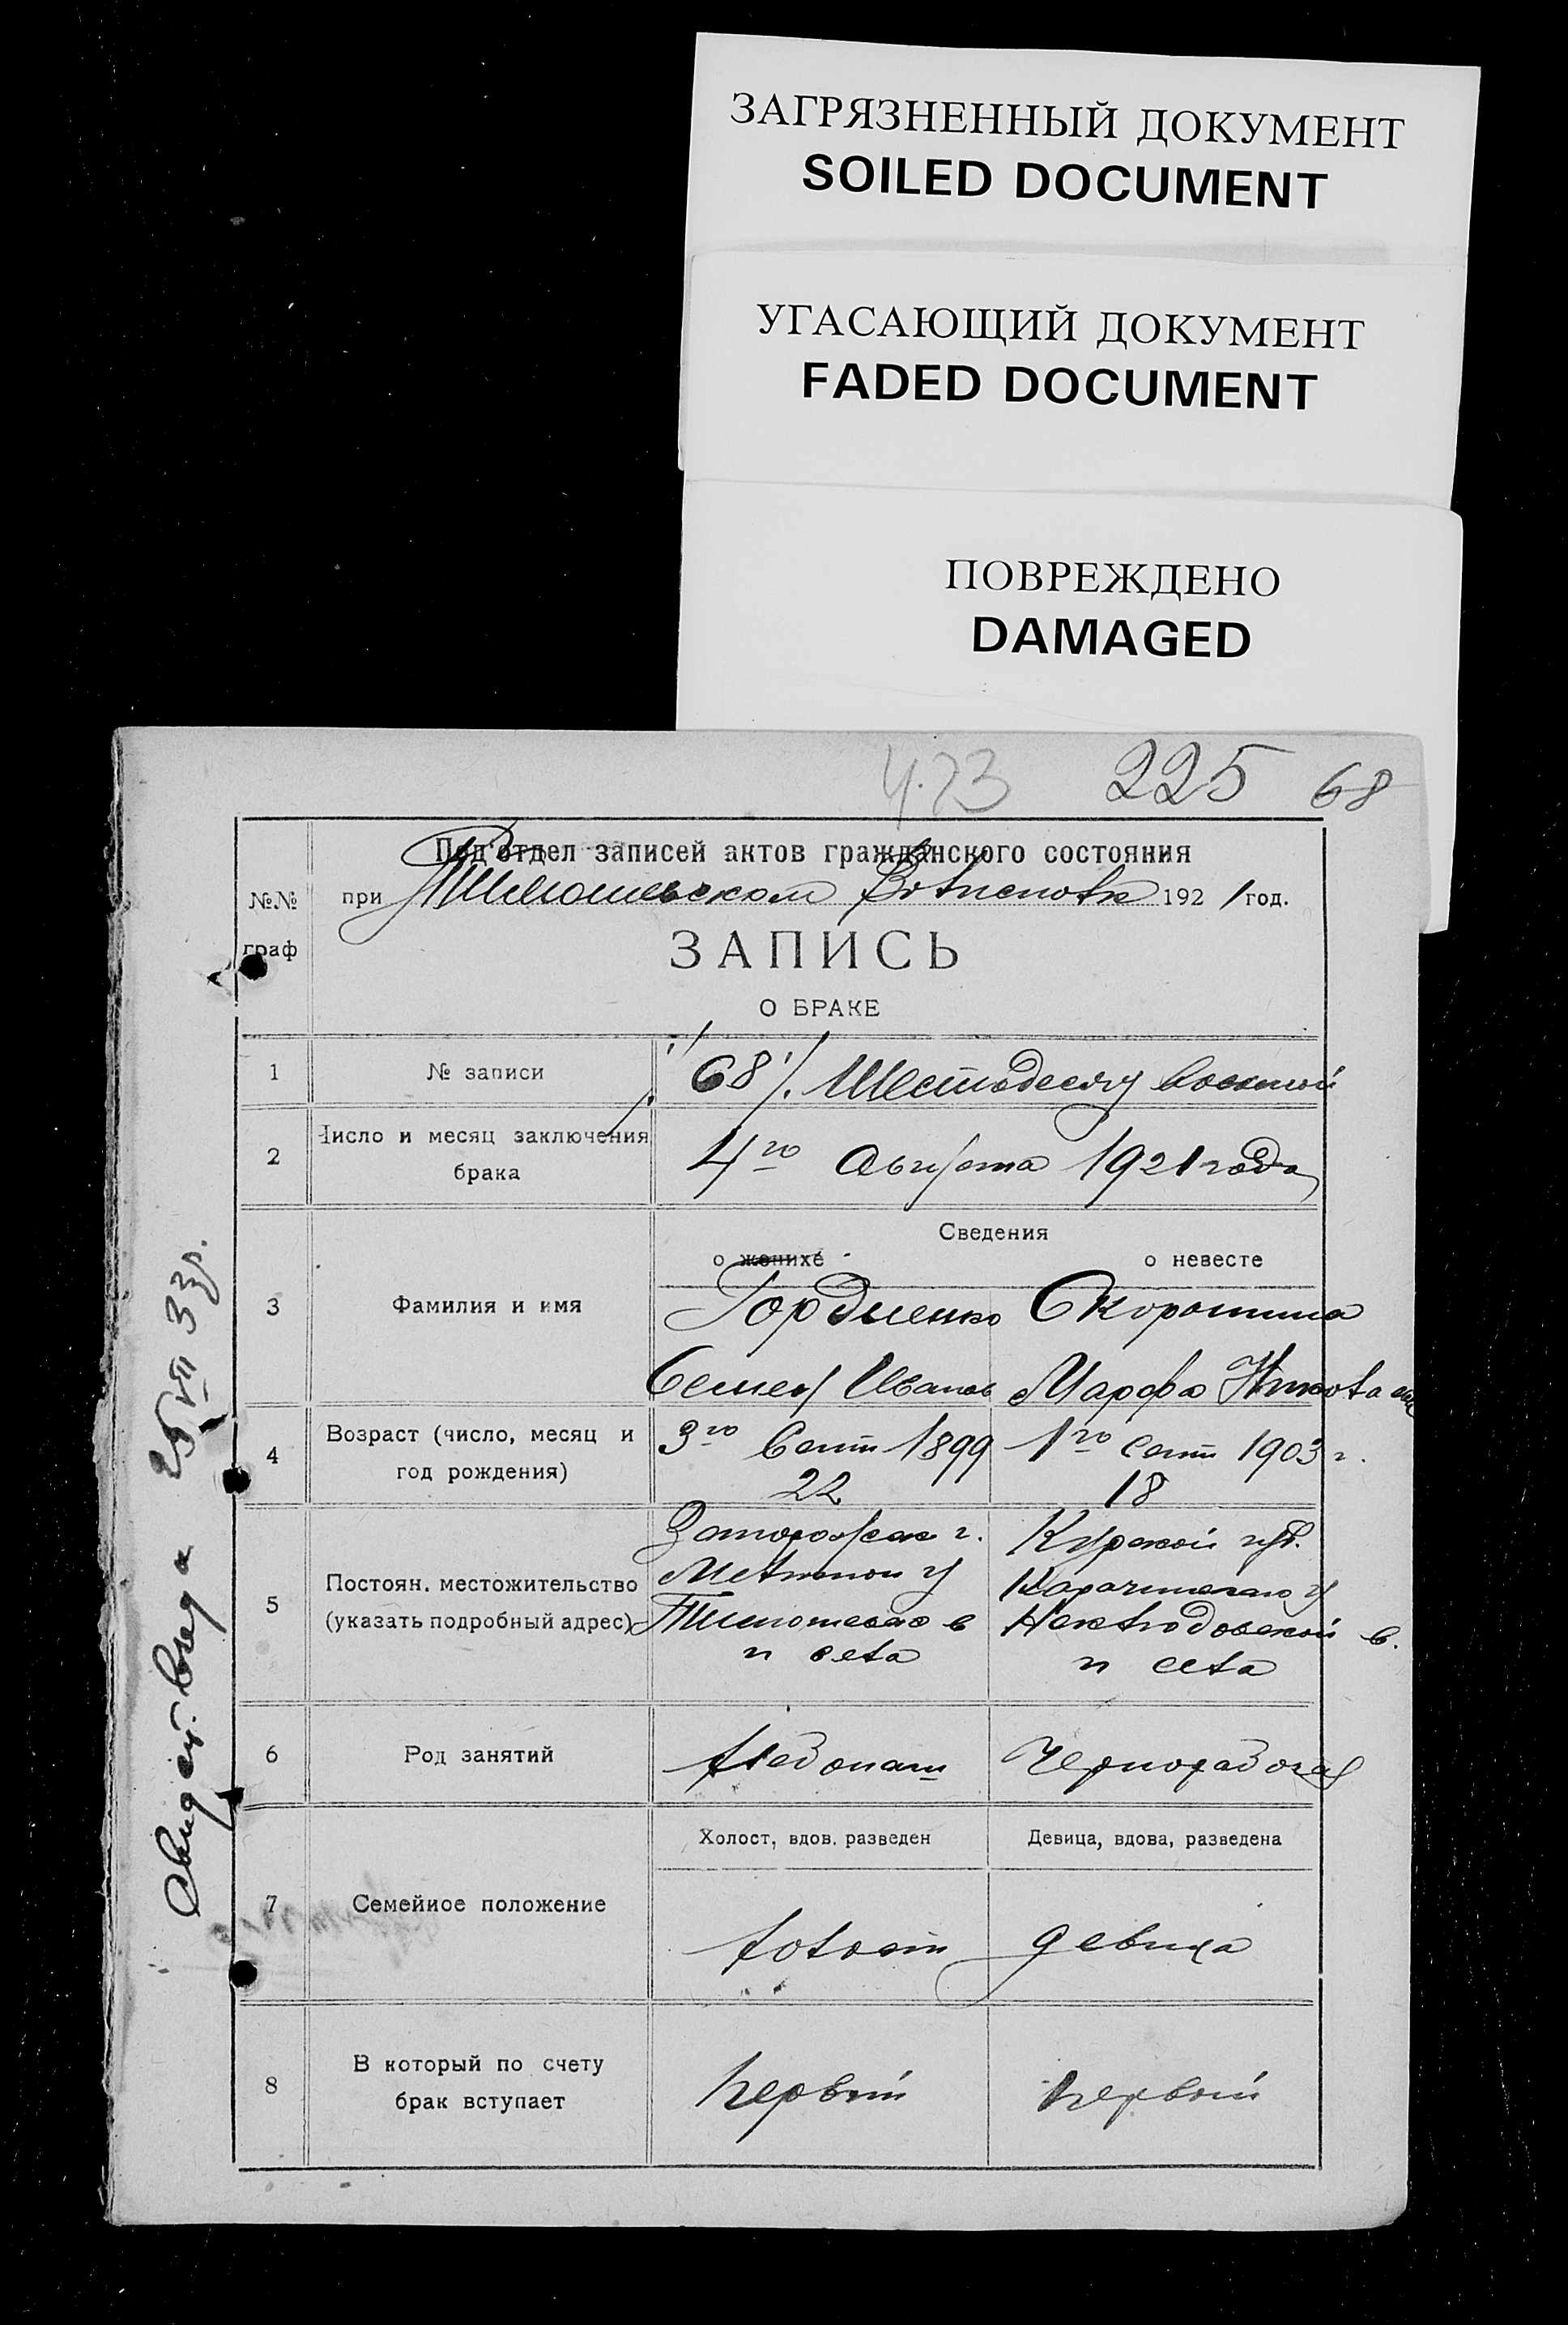 ЗАГРЯЗНЕННЫЙ ДОКУМЕНТ
SOILED DOCUMENT
УГАСАЮЩИЙ ДОКУМЕНТ
FADED DOCUMENT
ПОВРЕЖДЕНО
DAMAGED
4.23 225 68
№№ граф
Под'отдел записей актов гражданского состояния
при Тимошевском Волисполк 1921 год.
ЗАПИСЬ
О БРАКЕ
1 № записи 68 Шестьдесят восьмой
2 Число и месяц заключения брака 4го Августа 1921 года
Сведения
о женихе о невесте
3 Фамилия и имя Гордиенко Скорошина
Семен Иванов Марфа Николаев
4 Возраст (число, месяц и год рождения) 3го Сент 1899 1го Сент 1903 г.
22 18
5 Постоян. местожительство (указать подробный адрес)
Запорожск г. Курской губ.
Мелитоп у
Тимошевс в в.
и села и села
6 Род занятий хлебопаш Чернорабочая
7 Семейное положение
Холост, вдов. разведен Девица, вдова, разведена
холост девица
8 В который по счету брак вступает первый первый
Свидет. выда 25 VII 33 г.